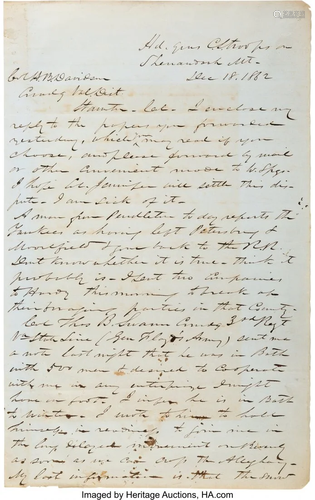 Hd. qrs C.S. troops on
Shenandoah Mt.
Dec 18. 1862
Col H B Davidson
Comdg Val Dist
Staunton - Col - I enclose my
reply to the paper you forwarded
yesterday, which you may read if you
choose, and please forward by mail
or other convenient mode to W. Spgs.
I hope Col. Jennifer will settle this dis-
pute - I am sick of it.
A man from Pendleton to day reports the
Yankees as having left Petersburg &
Moorefield & gone back to the R.R.
Dont know whether it is true - think it
probably is - I sent two companies
to Hardy this morning to break up
their foraging parties in that County -
Col Thos B. Swann Comdg 3d Regt
Va State Line (Gen Floyds Army) sent me
a note last night that he was in Bath
with 500 men & desired to cooperate
with me in any enterprise I might
have on foot. I infer he is in Bath
to Winter - I wrote to him to hold
himself in readiness to join me in
the long delayed movement on Beverly
as soon as we can cross the Alleghany -
My last information is that the
Imaged by Heritage Auctions, HA.com